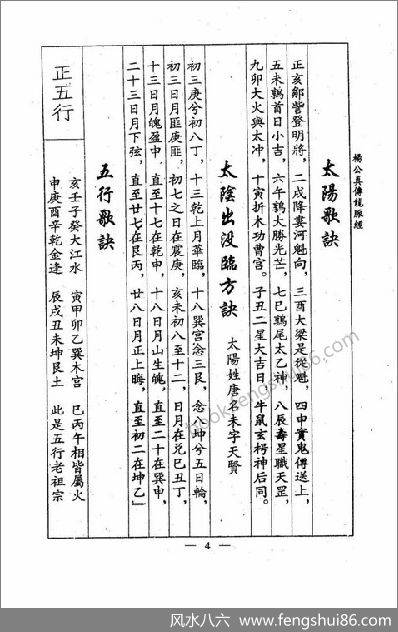 楊公真傳龍脈經
太陽歌訣
正亥鄒訾登明將，二戌降婁河魁向，三酉大梁是從魁，四申實鬼傳送上，
五未鶉首日小吉，六午鶉火勝光芒，七巳鶉尾太乙神，八辰壽星職天罡，
九卯大火與太冲，十寅折木功曹宫。子丑二星大吉日，牛鼠玄枵神后同。
太陰出没臨方訣
太陽姓唐名未字天賢
初三庚兮初八丁，十三乾上月華臨，十八巽宫念三艮，念八坤兮五日輪，
初三日月匪庚匪，初七之日在震庚，亥未初八至十二，日月在兑巳丑丁，
十三日月魄盈中，直至十七在乾甲，十八日月山生魄，直至二十在巽申，
二十三日月下弦，直至廿七在艮丙，廿八日月正上晦，直至初二在坤乙」
五行歌訣
正五行
亥壬子癸大江水　寅甲卯乙巽木宫　巳丙午相皆屬火
申庚酉辛乾金逢　辰戌丑未坤艮土　此是五行老祖宗
— 4 —
book.fengshui86.com
风水八六 www.fengshui86.com